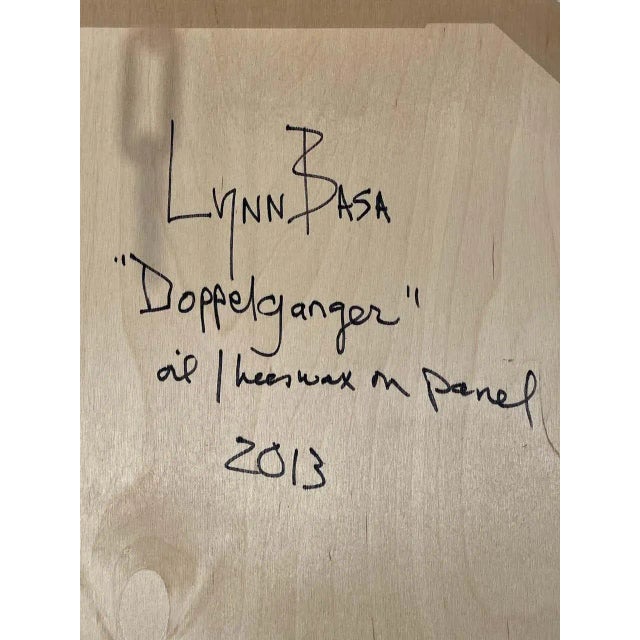 Lynn Basa
"Doppelganger"
oil / beeswax on panel
2013